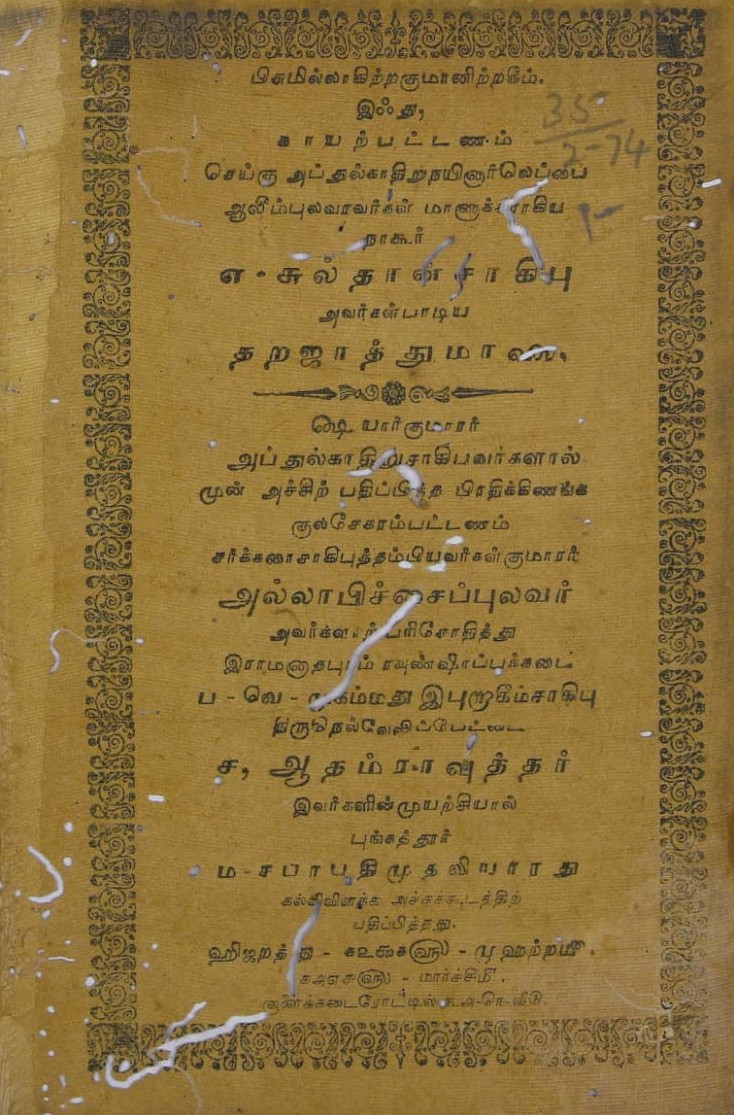 பிசுமில்லாகிற்றகுமானிற்றகீம்.
இஃது,
காயற்பட்டணம்
செய்கு அப்துல்காதிறுநயினார்லெப்பை
ஆலிம்புலவரவர்கள் மாணாக்கராகிய
நாகூர்
எ - சுல்தான்சாகிபு
அவர்கள்பாடிய
தறஜாத்துமாலை,
ஷை யார்குமாரர்
அப்துல்காதிறுசாகிபவர்களால்
முன் அச்சிற் பதிப்பித்த பிரதிக்கிணங்க
குலசேகரம்பட்டணம்
சர்க்கரைசாகிபுத்தம்பியவர்கள்குமாரர்
அல்லாபிச்சைப்புலவர்
அவர்களாற் பரிசோதித்து
இராமனாதபுரம் ரவுண்ஷாப்புக்கடை
ப - வெ - முகம்மது இபுறாகீம்சாகிபு
திருநெல்வேலிப்பேட்டை
ச, ஆதம்ராவுத்தர்
இவர்களின்முயற்சியால்
புங்கத்தூர்
ம - சபாபதிமுதலியாரது
கல்விவிளக்க அச்சுக்கூடத்திற்
பதிப்பித்தது.
ஹிஜறத்து - முஹற்றமீ.
மார்ச்சிமீ.
35
2-74